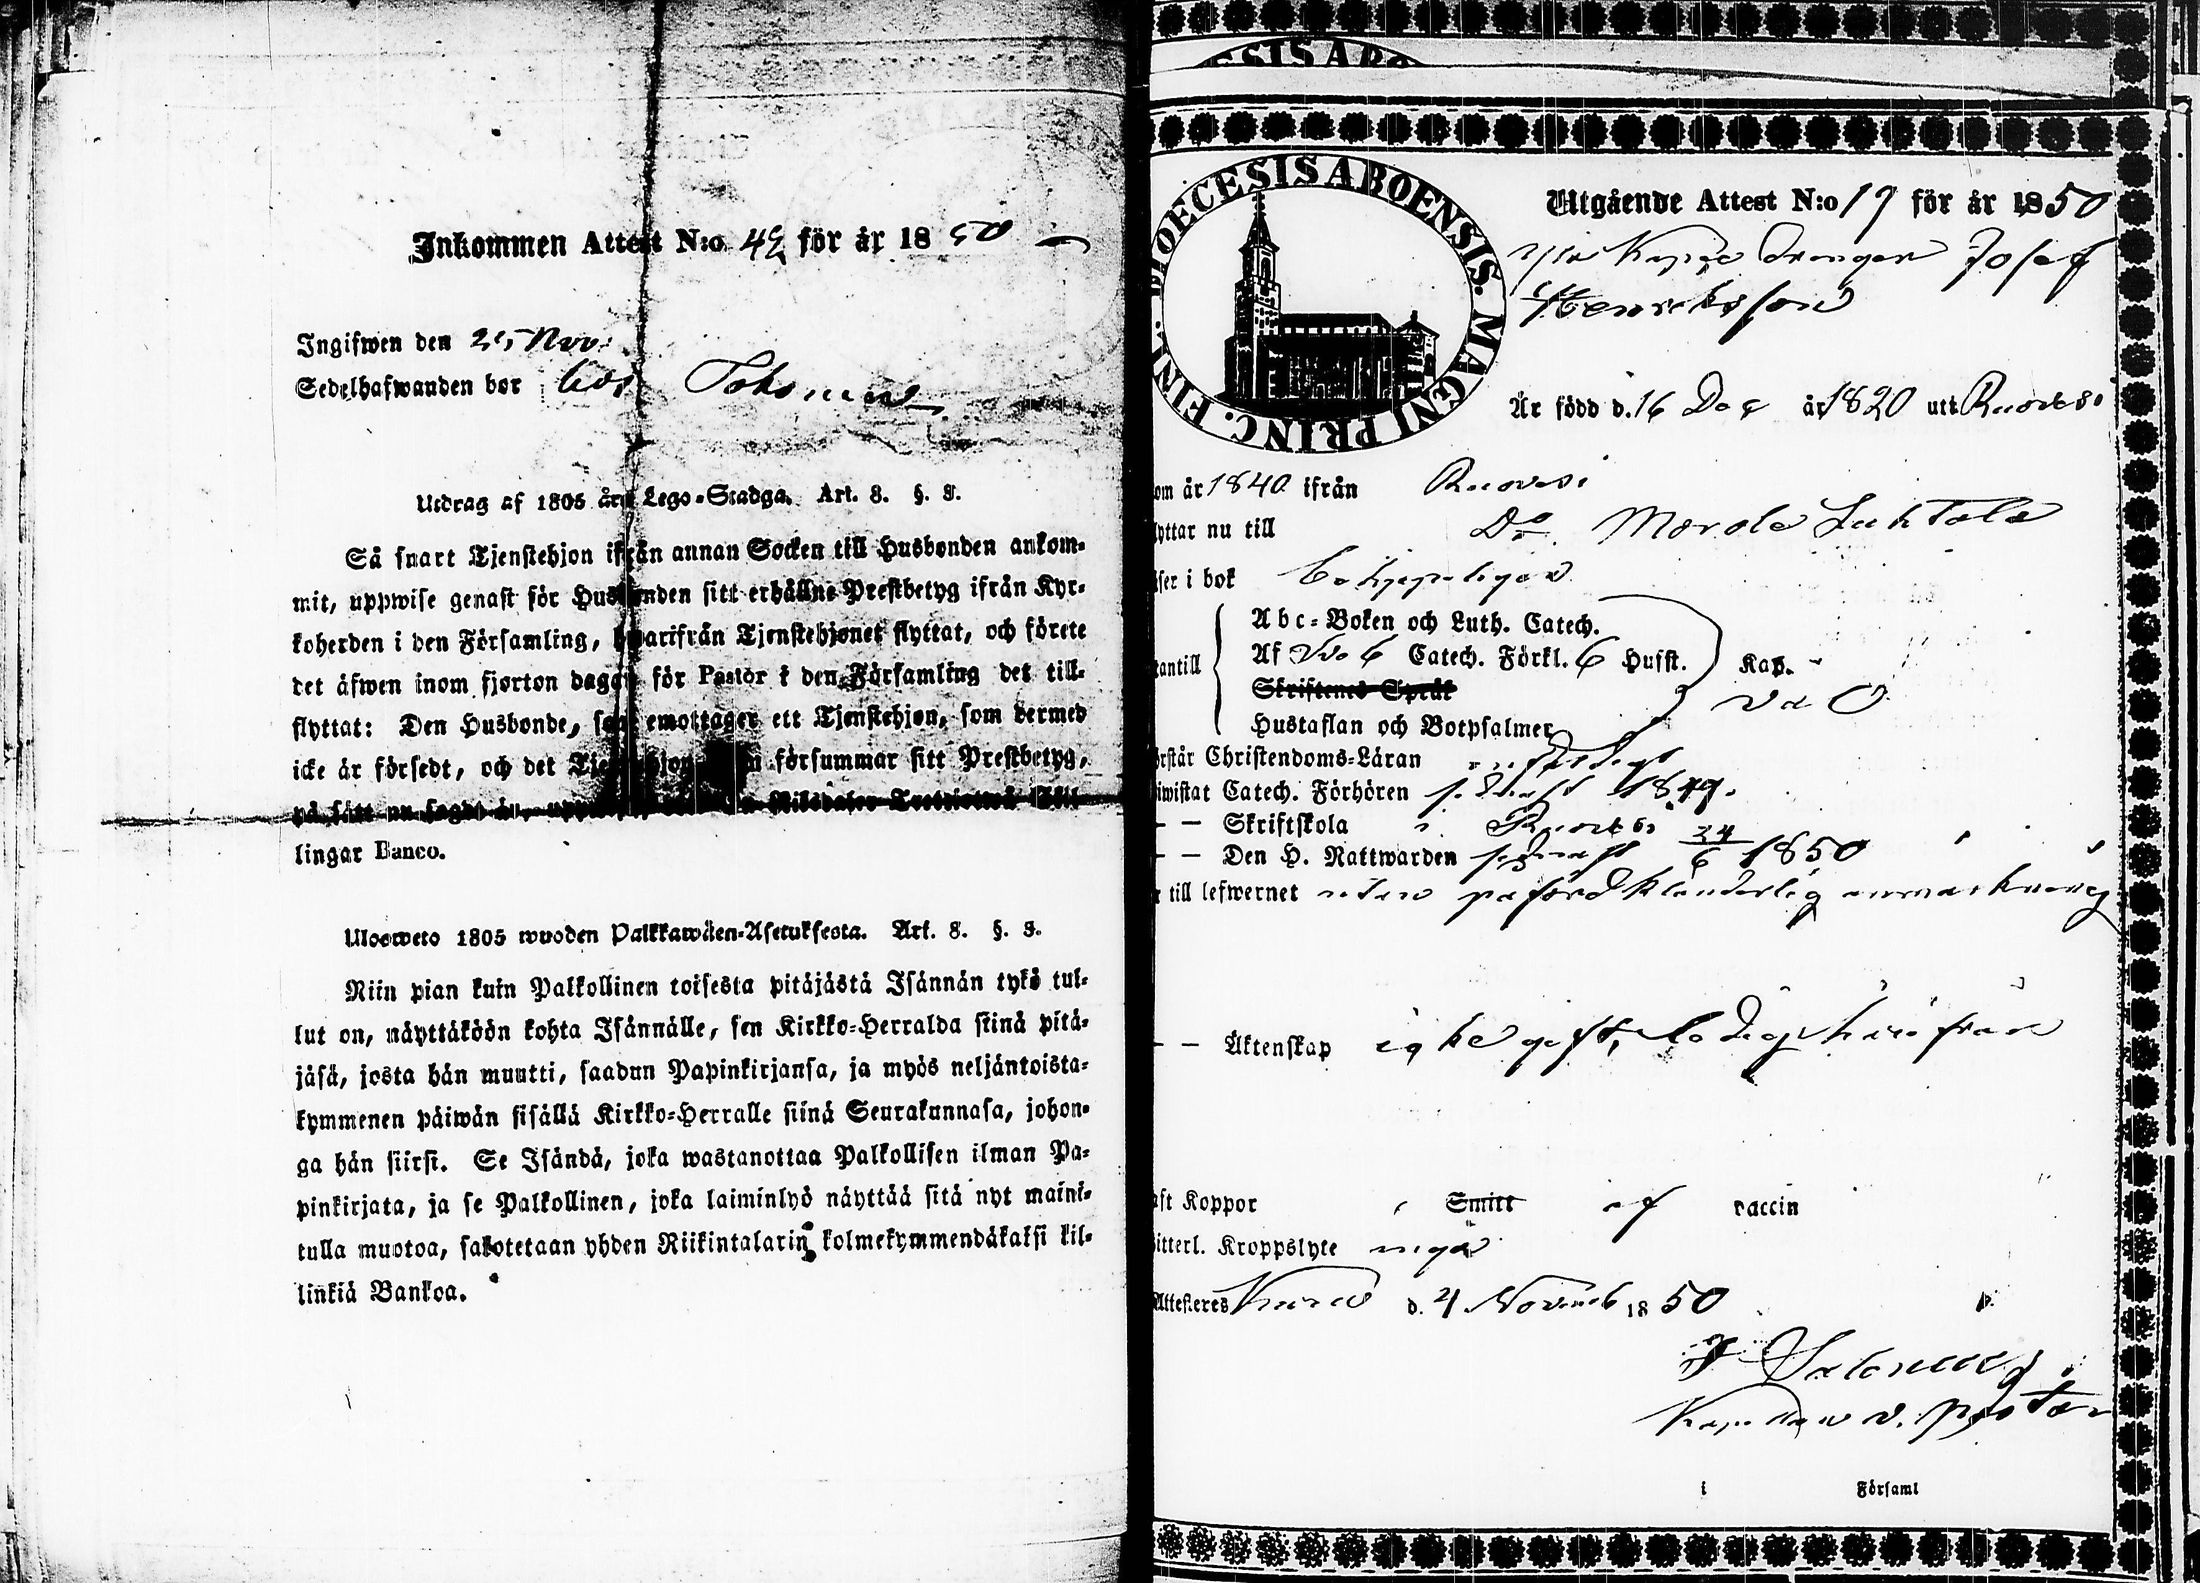 Inkommen Attest N:o 49 för år 1850
Ingifwen den 25 Nov:
Sedelhafwanden bor hos
Utdrag af 1805 års Lego-Stadga. Art. 8. §. 3.
Så snart Tjenstehjon ifrån annan Socken till Husbonden ankom-
mit, uppwise genast för Husbonden sitt erhållne Prestbetyg ifrån Kyr-
koherden i den Församling, hwarifrån Tjenstehjonet flyttat, och förete
det äfwen inom fjorton dagar för Pastor i den Församling det till-
flyttat: Den Husbonde, som emottager ett Tjenstehjon, som dermed
icke är försedt, och det Tjenstehjon som försummar sitt Prestbetyg,
på sätt nu sagdt är, Riksdaler Trettiotwå Skil-
lingar Banco.
Ulosweto 1805 wuoden Palkkawäen-Asetuksesta. Art. 8. §. 3.
Niin pian kuin Palkollinen toisesta pitäjästä Isännän tykö tul-
lut on, näyttäköön kohta Isännälle, sen Kirkko-Herralda siinä pitä-
jäsä, josta hän muutti, saadun Papinkirjansa, ja myös neljäntoista-
kymmenen päiwän sisällä Kirkko-Herralle siinä Seurakunnasa, johon-
ga hän siirsi. Se Isändä, joka wastanottaa Palkollisen ilman Pa-
pinkirjata, ja se Palkollinen, joka laiminlyö näyttää sitä nyt maini-
tulla muotoa, sakotetaan yhden Riikintalarin kolmekymmendäkaksi kil-
linkiä Bankoa.
SIS ABO
DIOECESIS ABOENSIS. MAGNI PRINC. FINL.
Utgående Attest N:o 19 för år 1850
Drengen Josef
Henriksson
Är född d. 16 Dec år 1820 uti Ruovesi
om år 1840 ifrån Ruovesi
lyttar nu till Do Lahtola
äser i bok behjelpligen
Abc-Boken och Luth. Catech.
Af Catech. Förkl. 6 Husst. Kap.
antill
Skriftenes Språk
Hustaflan och Botpsalmer
örstår Christendoms-Läran
iwistat Catech. Förhören s. 1849.
— — Skriftskola i Ruovesi
— — Den H. Nattwarden 24/6 1850
r till lefwernet utan klanderlig anmärkning
— — Äktenskap icke gift, ledig härifrån
aft Koppor Smitt af vaccin
itterl. Kroppslyte inga
Attesteres Kuru d. 21 Novemb 1850
Kapellan v. pastor
i Församl